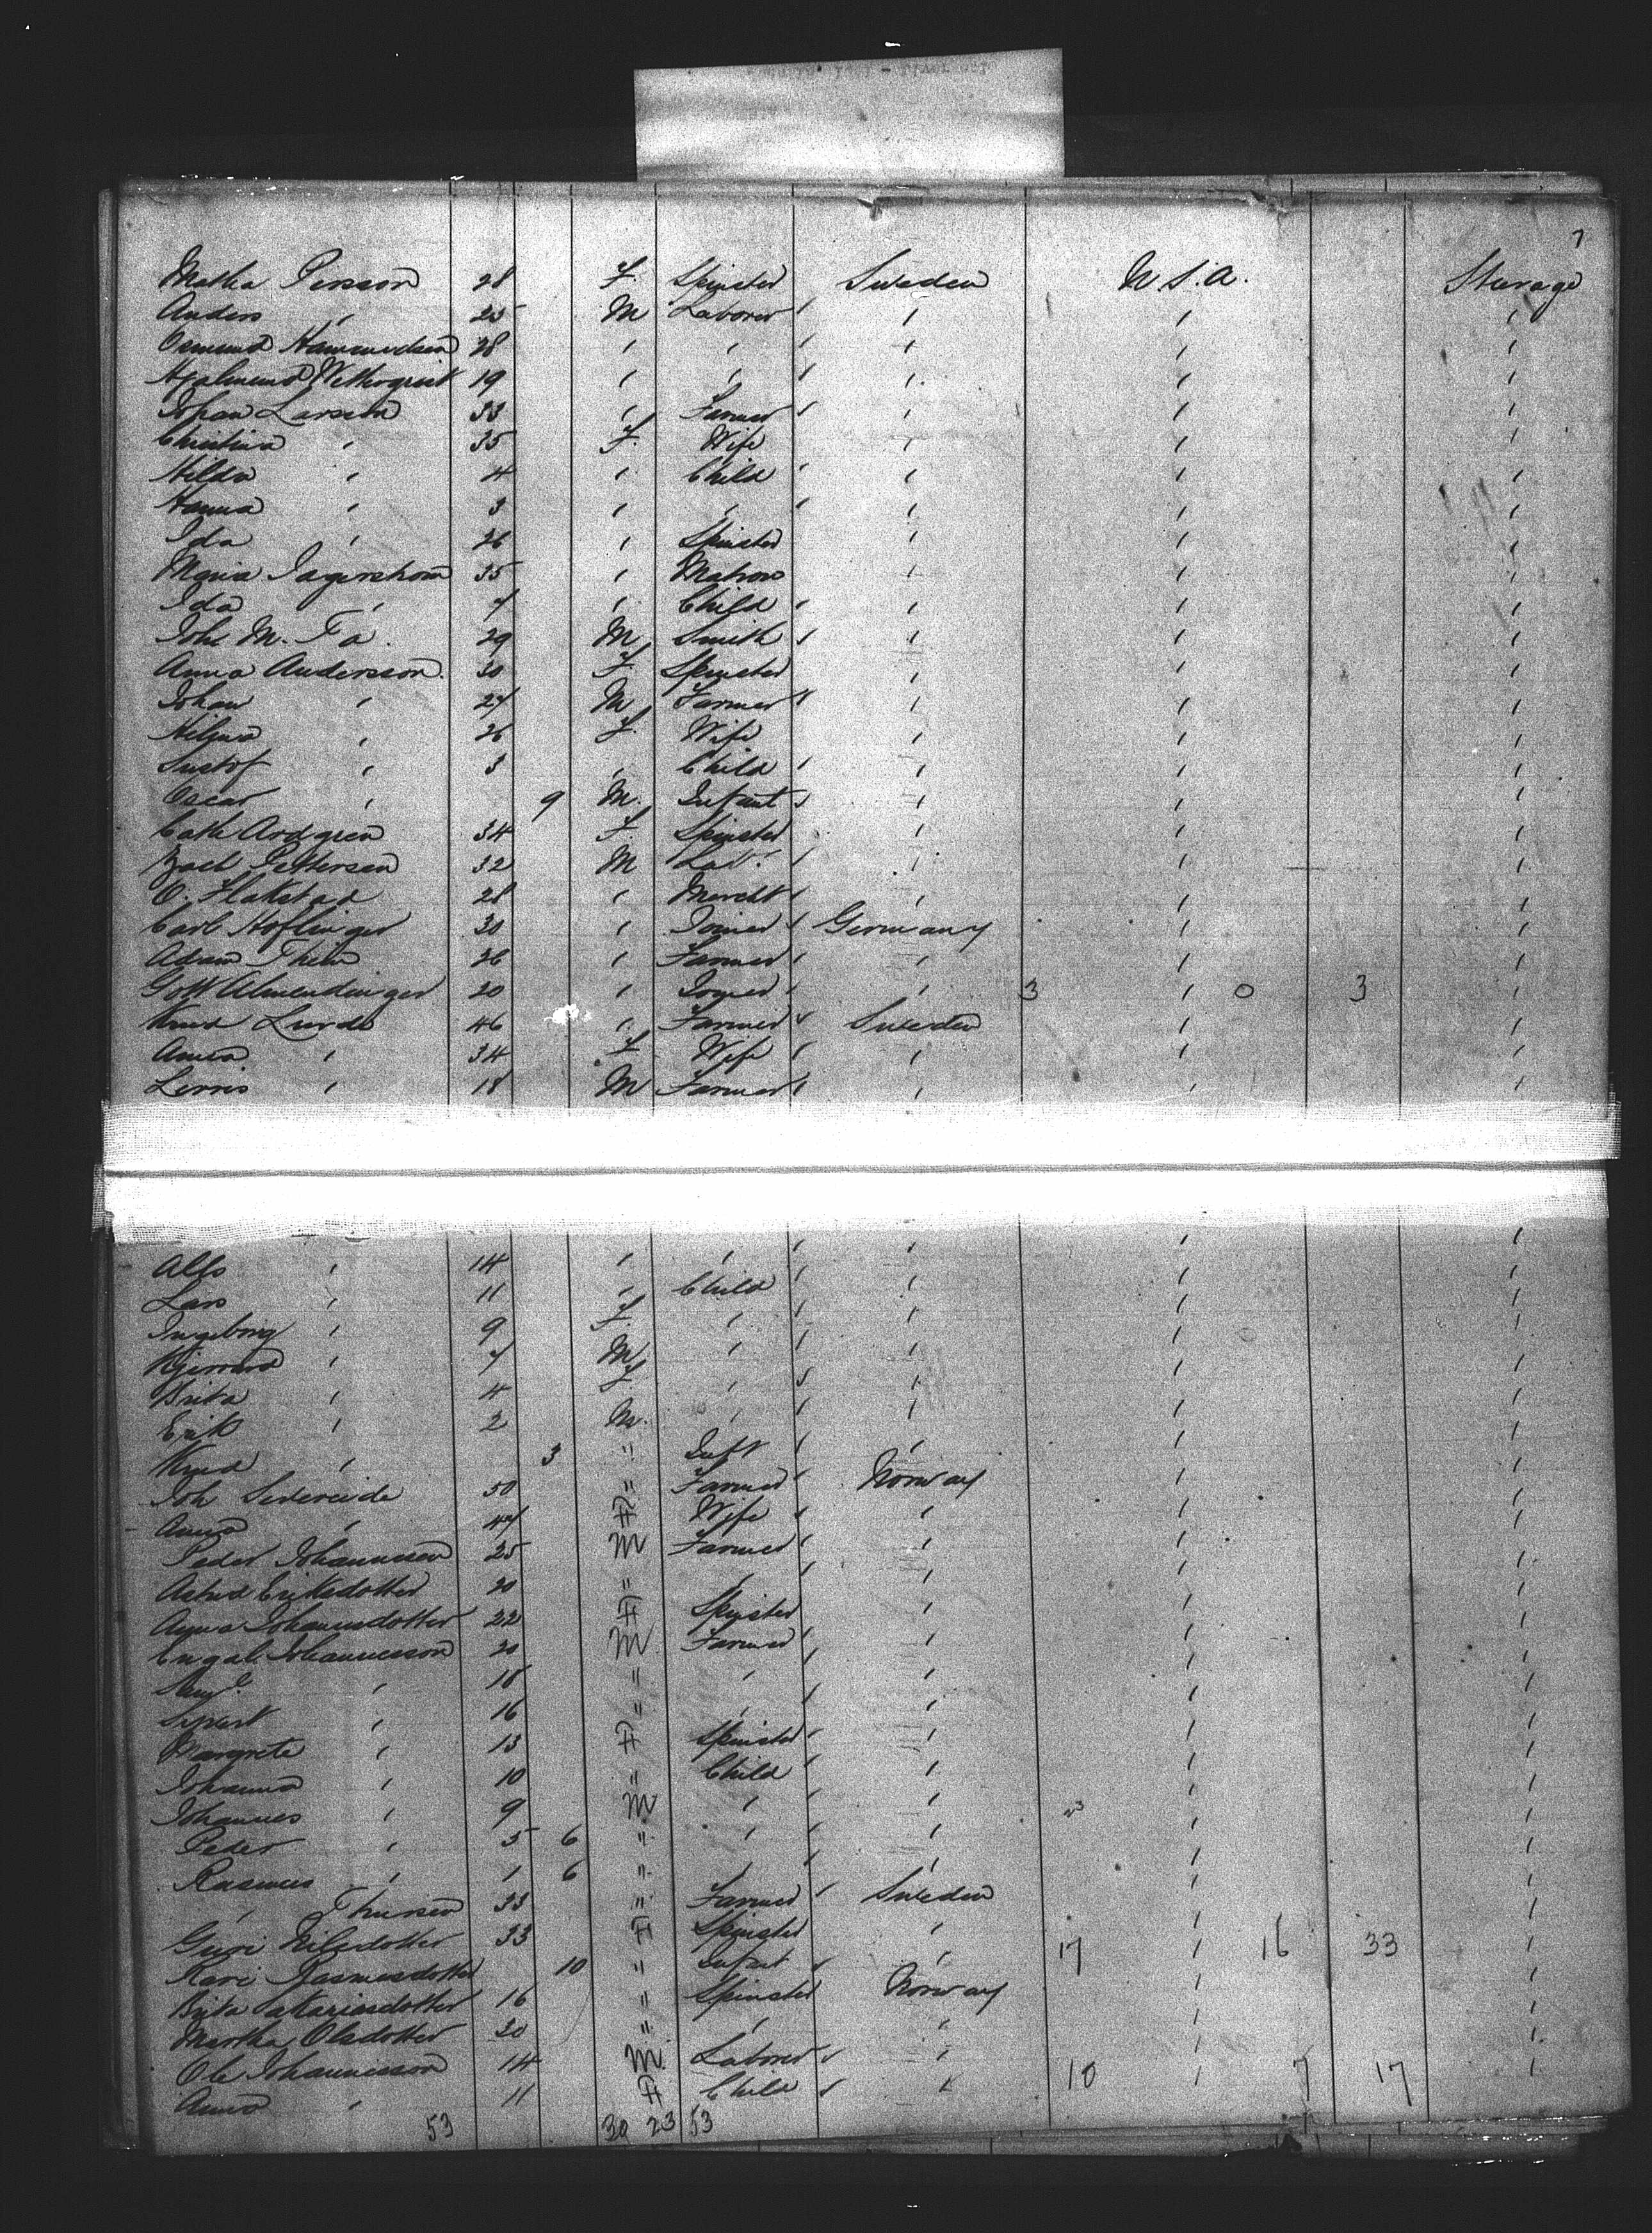 7
Matha Persson 28 F. Spinster Sweden U.S.A. Sterage
Anders " 25 M Laborer " " "
Osmund 28 " " " " "
19 " " " " "
Johan Larsson 33 " Farmer " " "
Christina " 35 F. Wife " " "
Hilda " 4 " Child " " "
Hanna " 3 " " " " "
Ida " 26 " Spinster " " "
Maria Jagerstrom 35 " Matron " " "
Ida " 7 " Child " " "
Joh M. Fa. 29 M Smith " " "
Anna Andersson. 30 F Spinster " " "
Johan " 27 M Farmer " " "
Hilma " 26 F. Wife " " "
Gustof " 3 " Child " " "
Oscar " 9 M. Infant " " "
Cath Ardgren 34 F. Spinster " " "
Pettersen 32 M Lab. " " "
O. Flakstad 28 " Mercht " " "
Carl Hoflinger 30 " Joiner Germany " "
Adam Thein 26 " Farmer " " "
Gott Almendinger 20 " Joiner " 3 " 0 3 "
Knud Lurde 46 " Farmer Sweden " "
Anna " 34 F Wife " " "
" 18 M Farmer " " "
" " "
" 14 " " " " "
Lars " 11 " Child " " "
Ingeborg " 9 F. " " " "
" 7 M " " " "
Brita " 4 F " " " "
Erik " 2 M. " " " "
Knud " 3 " Inft " " "
Joh 50 " Farmer Norway " "
Anna " 47 F Wife " " "
Peder Johannesen 25 M Farmer " " "
Astrid Eriksdotter 20 " " " " "
Anna Johannsdotter 22 F Spinster " " "
Engal Johannesson 20 M Farmer " " "
" 18 " " " " "
" 16 " " " " "
Margrete " 13 F Spinster " " "
Johanna " 10 " Child " " "
Johannes " 9 M " " " "
Peder " 5 6 " " " " "
Rasmus " 1 6 " " " " "
" Thursen 33 " Farmer Sweden " "
Guri Nilsdotter 33 F Spinster " 17 " 16 33 "
Kari Rasmusdotter 10 " Infant " " "
Brita 16 " Spinster Norway " "
Martha Olsdotter 20 " " " " "
Ole Johannesson 14 M. Laborer " " "
Anna " 11 F Child " 10 " 7 17 "
53 30 23 53